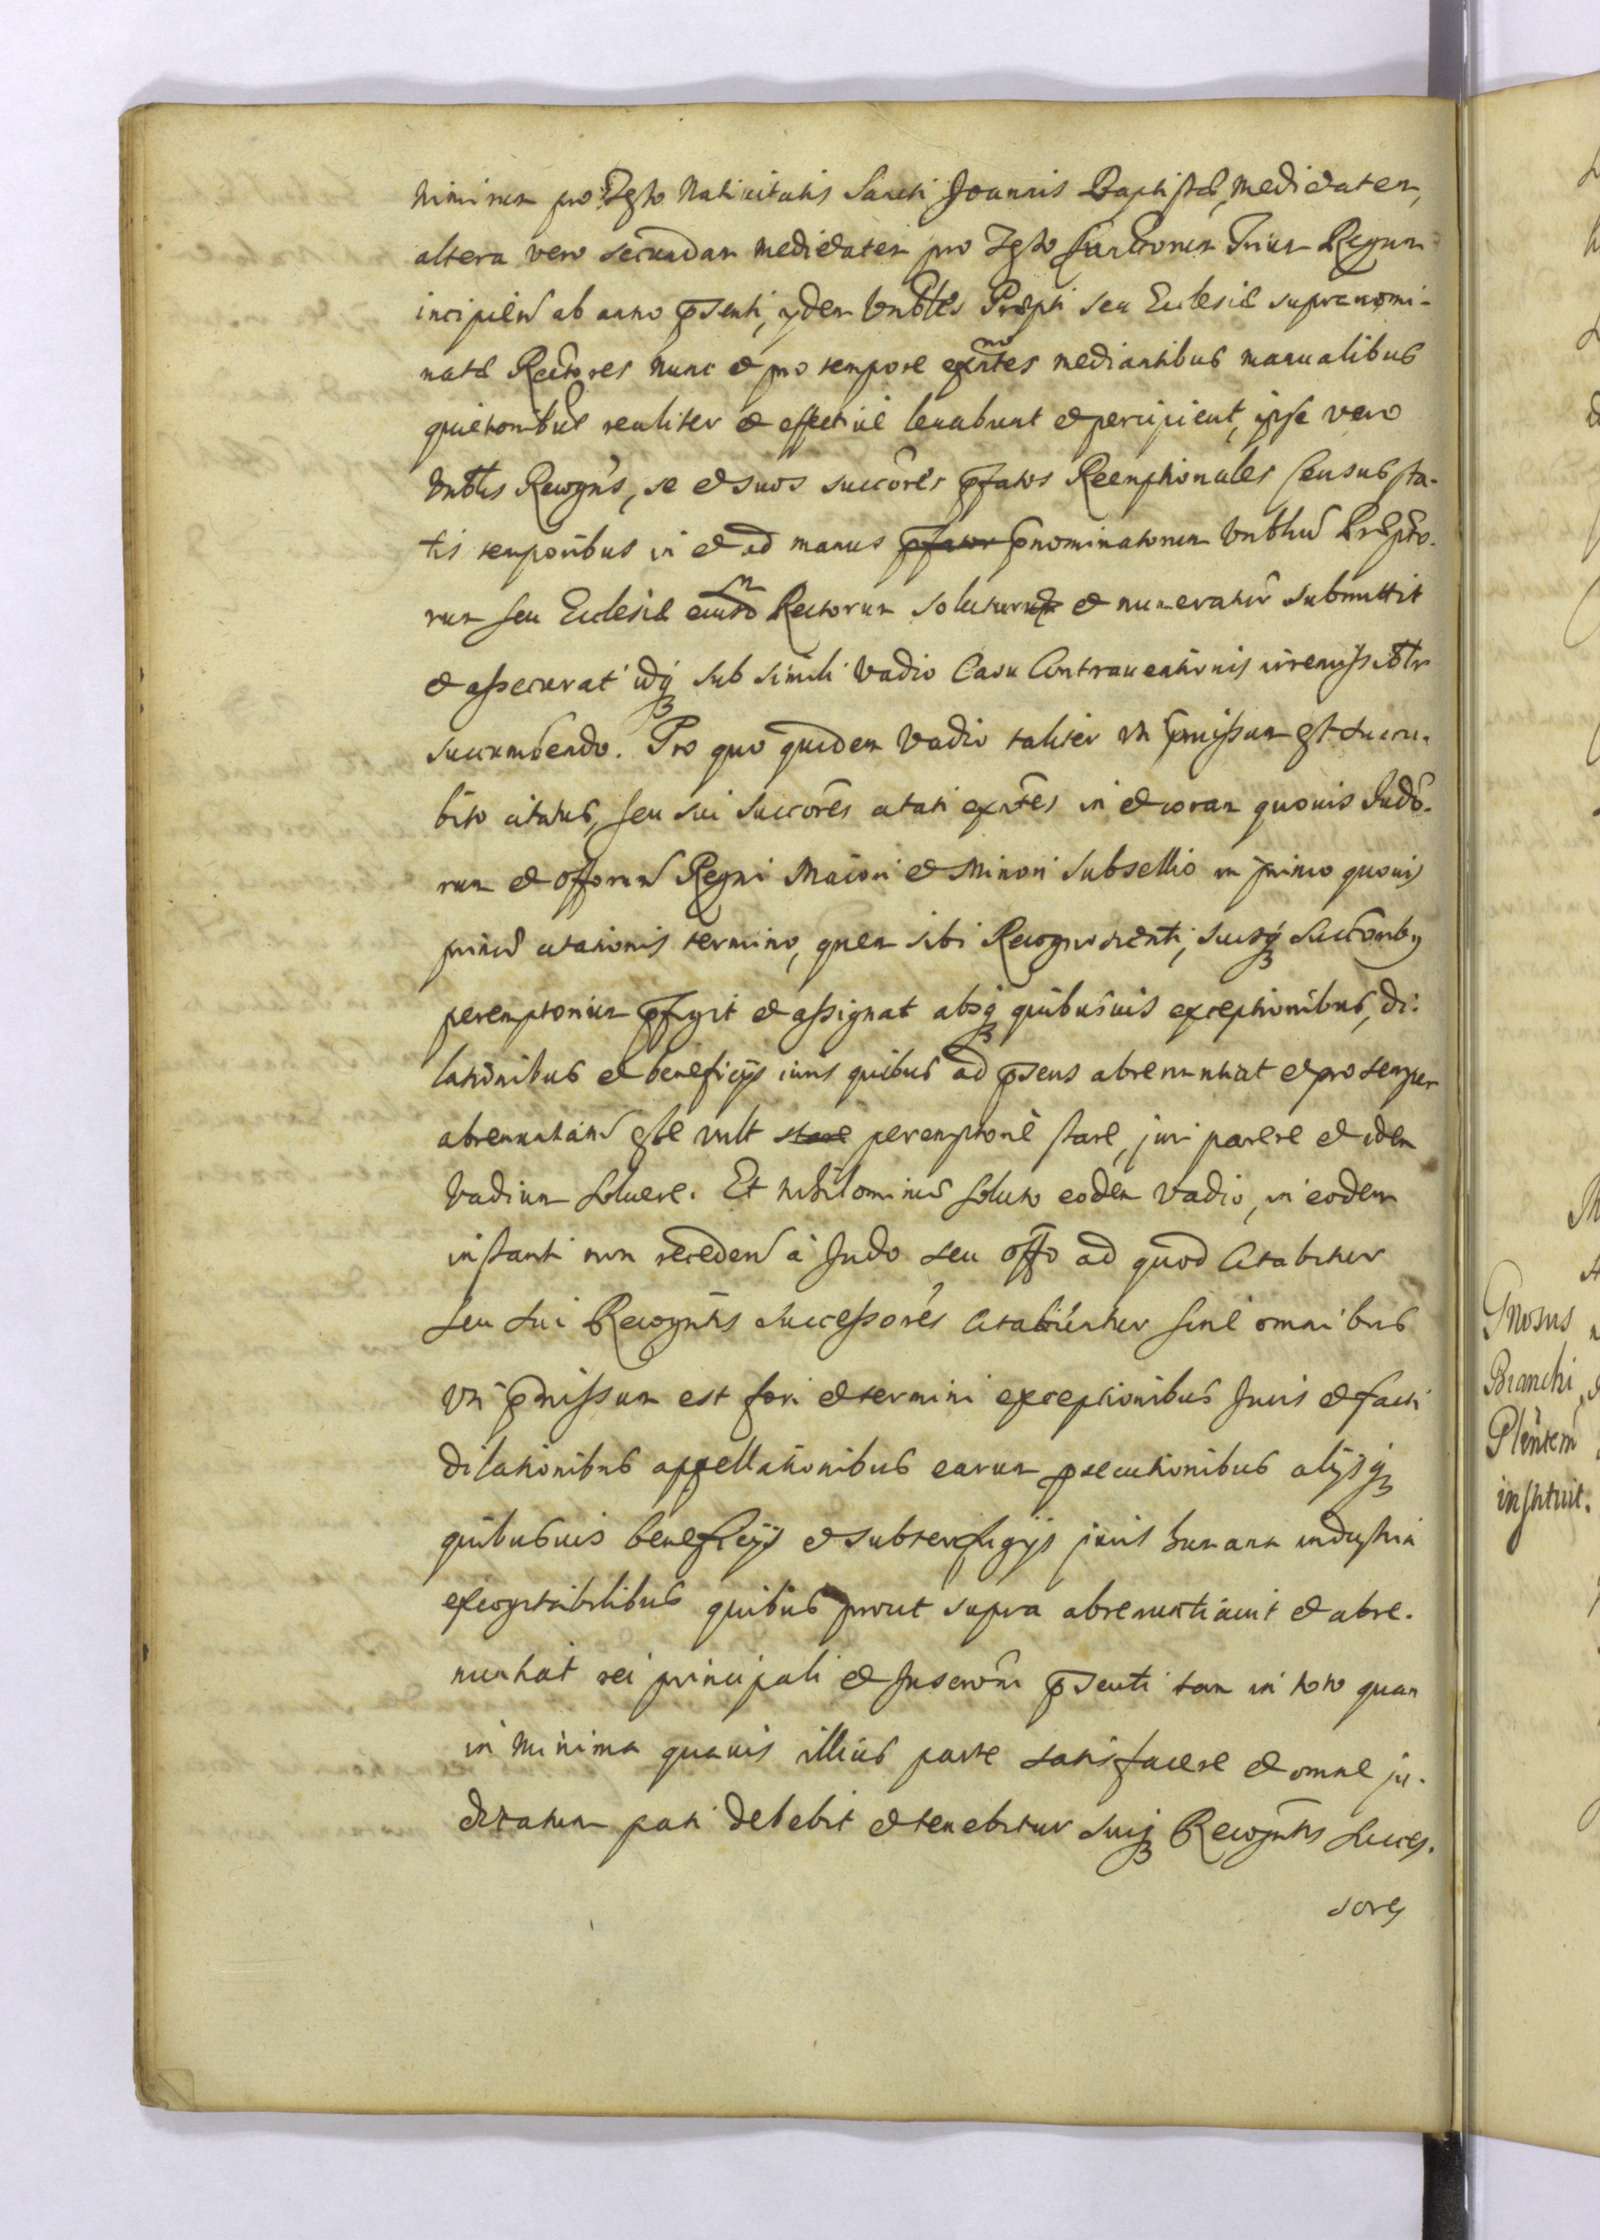 nimirum pro Festo Natiuitatis Sancti Joannis Baptistæ, medietatem,
altera vero secundam medietatem pro Festo Sanctorum Trium Regum
incipiens ab anno p̄senti, ijdem Vnbles Præpti seu Eclesiæ supranomi-
natæ Rectores nunc et pro tempore exñtes mediantibus manualibus
quietonibus realiter et effectiue leuabunt et percipient, ipse vero
Vnblis Recogns, se et suos succores p̄fatos Reemptionales Census sta-
tis temporibus in et ad manus p̄fator p̄nominatorum Vnblium Præpto-
rum seu Eclesiæ eiusd Rectorum soluturum et numeratur submittit
et assecurat idq sub simili vadio Casu Contrauentionis irremissiblr
succumbendo. Pro quo quidem Vadio taliter vti p̄missum est succu-
bito citatus, seu sui succores citati exñtes in et coram quouis Judo-
rum et offorum Regni Maiori et Minori Subsellio in primo quouis
primæ citationis termino, quem sibi Recognoscenti, suisq Succoribus
peremptorium p̄figit et assignat absq quibusuis exceptionibus, di-
lationibus et beneficijs iuris quibus ad p̄sens abrenuntiat et pro semper
abrenuntians esse vult stare peremptorie stare, juri parere et idem
Vadium soluere. Et nihilominus soluto eodem vadio, in eodem
instanti non recedens à Judo seu offo ad quod Citabitur
seu sui Recogntis Successores Citabuntur sine omnibus
vti p̄missum est fori et termini exceptionibus Juris et facti
dilationibus appellationibus earum p̄secutionibus alijsq
quibusuis beneficijs et subterfugijs juris humana industria
excogitabilibus quibus prout supra abrenuntiauit et abre-
nuntiat rei principali et Inscroni p̄senti tam in toto quam
in minima quauis illius parte satisfacere et omne ju-
dicatum pati debebit et tenebitur suiq Recogntis Succes-
sores
Gnosus
Branchi
Plentem
instituit.